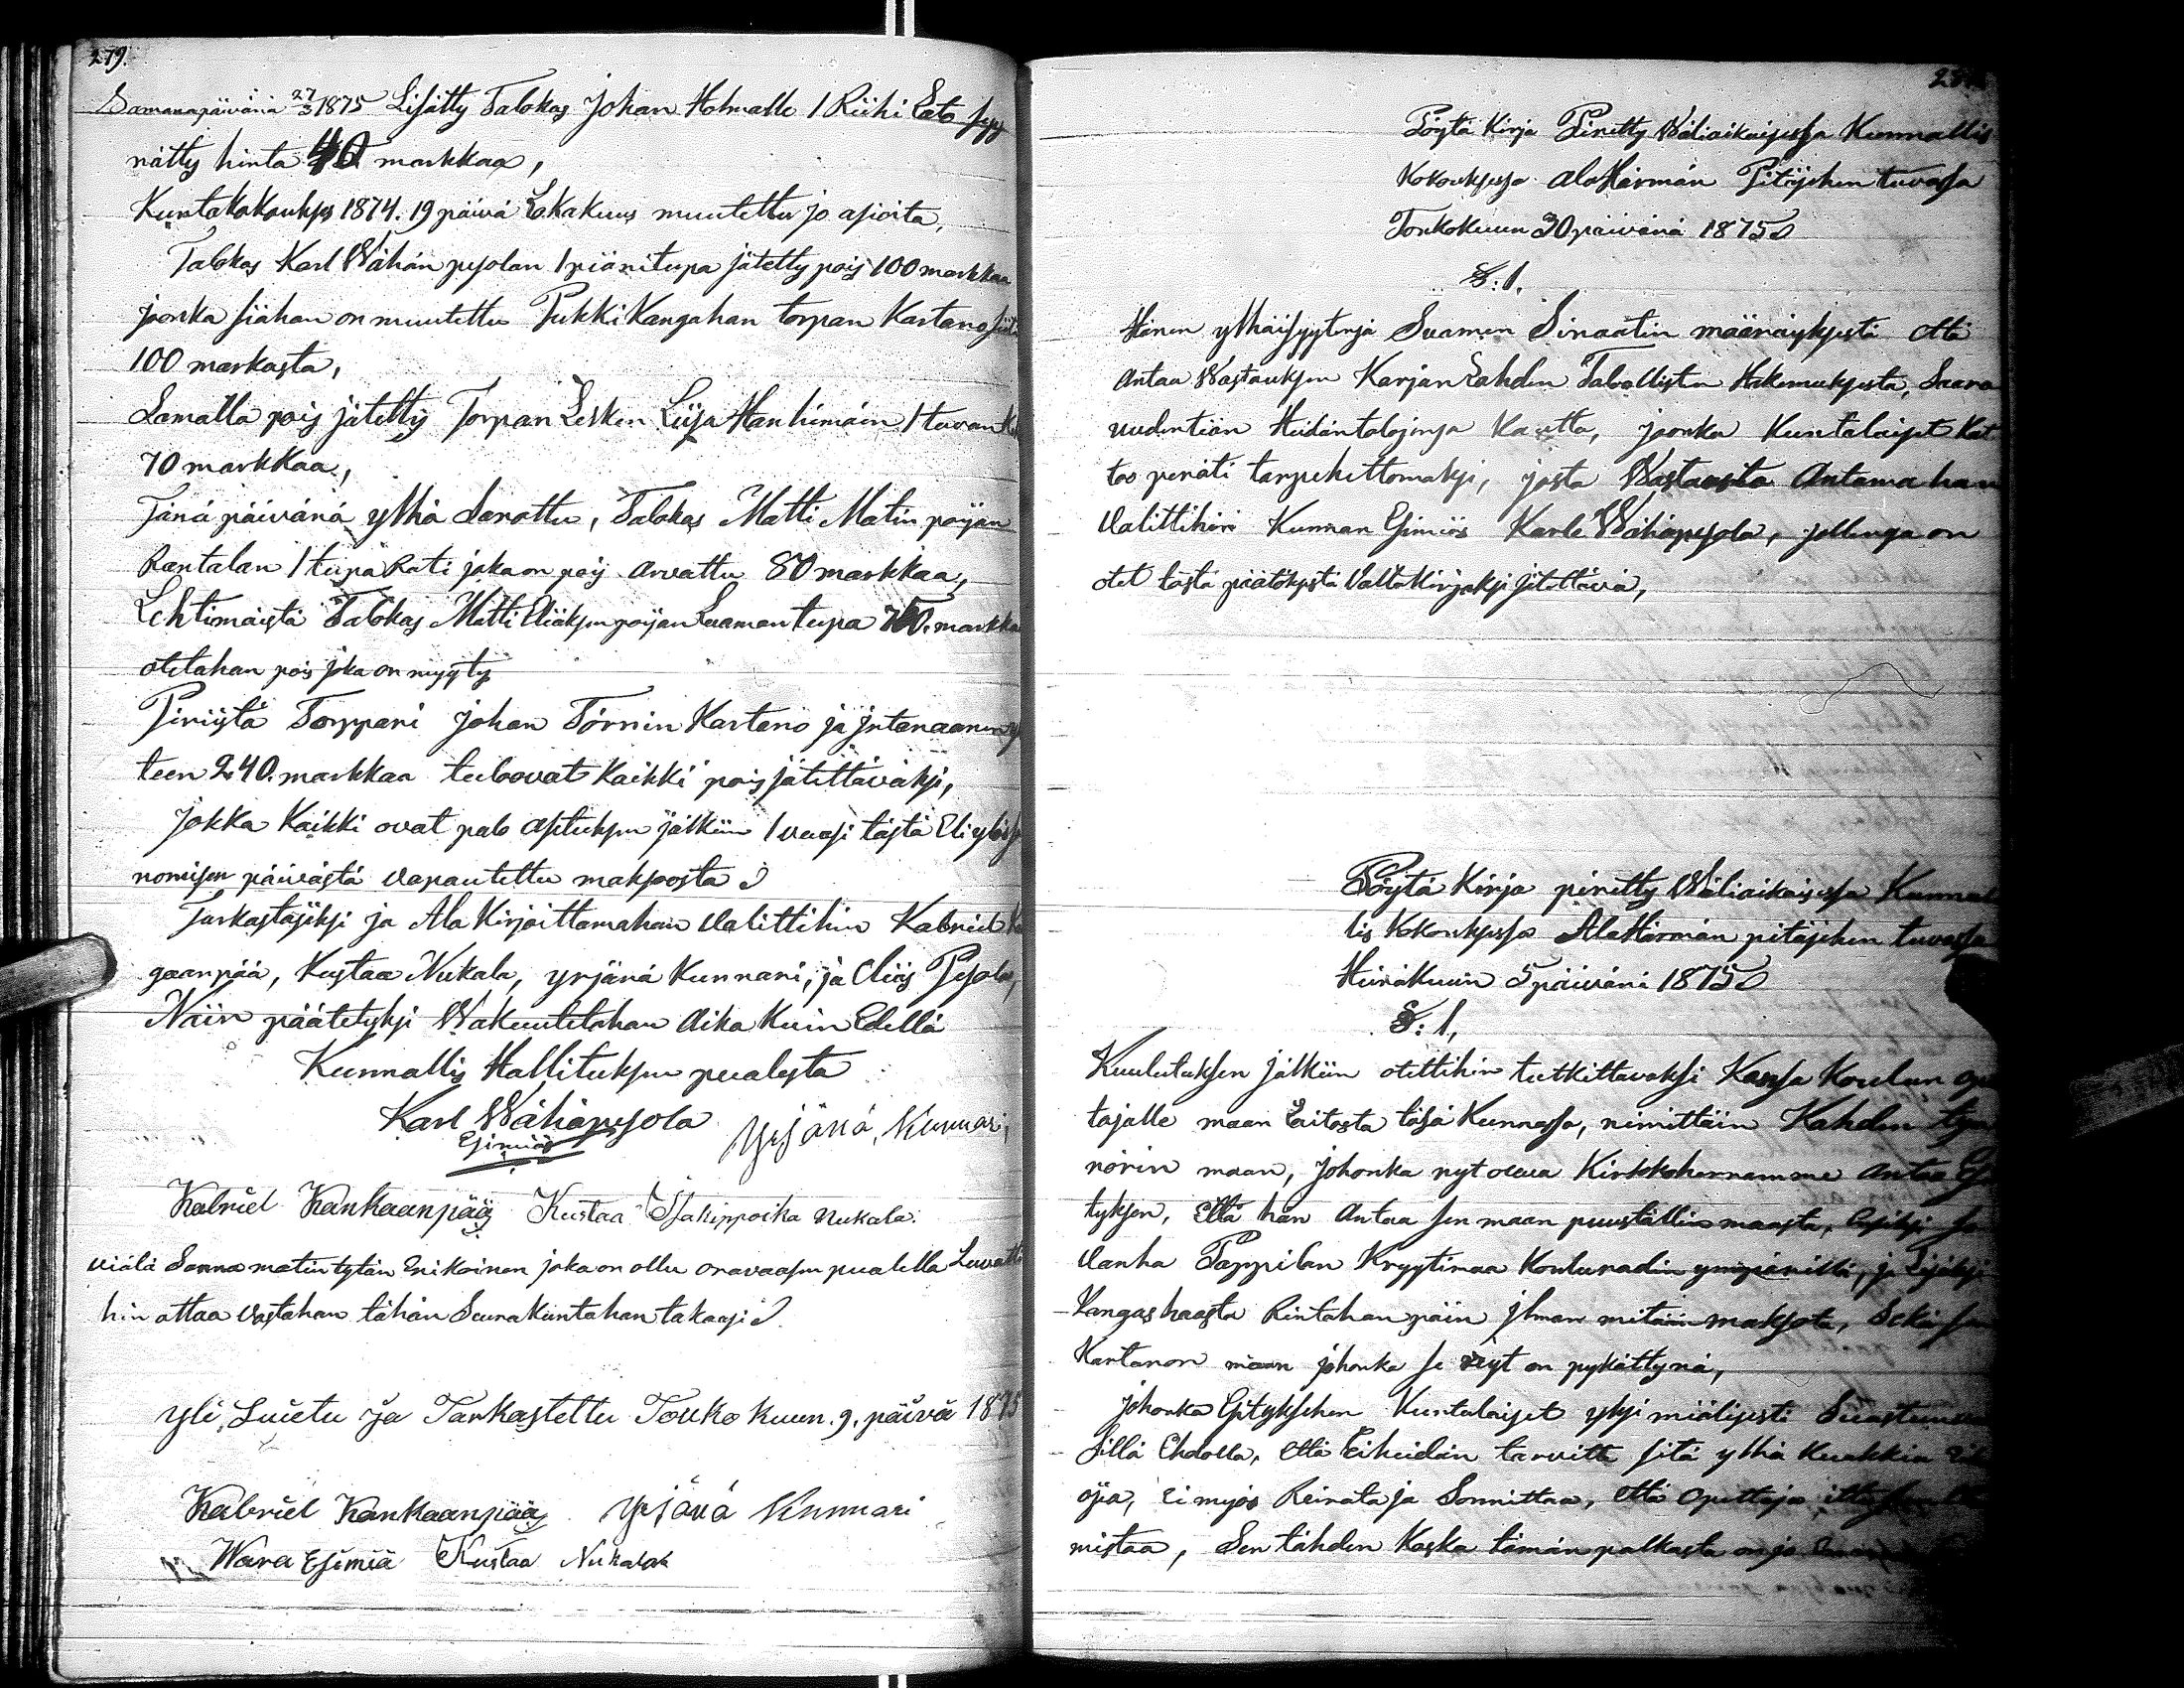 279.
Samanapäivänä 27/3 1875 Lisätty Talokas Johan Holmalle 1 Riihi Lato syy
nätty hinta 40 markkaa,
Kuntakokoukses 1874. 19 päivä Lokakuus muutettu jo asioita,
Talokas Karl Wähän pesolan 1 piänitupa jätetty pois 100 markkaa
jonka siahan on muutettu PukkiKangahan torpan Kartano
100 markasta,
Samalla pois jätetty Torpan Lesken Liisa Hanhimäin 1 tuvan
70 markkaa,
Tänä päivänä ylhä Sanottu, Talokas Matti Matin poijan
Rantalan 1 tupa Rati joka on pois arvattu 80 markkaa,
Lehtimäistä Talokas Matti Eliäksen poijan Luoman tupa 700. markkaa
otetahan pois joka on myyty
Piristä Torppari Johan Törnin Kartano ja jrtanaanin
teen 240. markkaa tulovat Kaikki pois jätettäväksi,
Jokka Kaikki ovat palo asetuksen jälkiin 1 vuasi tästä Eli ylös
nomisen päivästä vapautettu maksosta
Tarkastajiksi ja AlaKirjoittamahan valittihin Kabriel
gaanpää, Kustaa Nukala, yrjänä Kunnari, ja Eliäs Pesola,
Näin päätetyksi Wakuutetahan Aika Kuin Edellä
Kunnallis Hallituksen puolesta
Karl Wähäpesola
Esimiäs
Yrjänä, Kunnari,
Kabriel Kankaanpää Kustaa Jsakinpoika Nukala.
viälä Sanna matin tytän Enikoinen joka on ollu oravaasen puolella Luvatti
hin ottaa Vastahan tähän Seurakuntahan takaasi
yli Luietu ja Tarkastettu Touko kuun. 9. päivä 1875
Kabriel Kankaanpää Yrjänä Kunnari
Wara Esimiä Kustaa Nukala
Pöytä Kirja Piretty Wäliaikaisessa Kunnallis
Kokouksessa AlaHärmän Pitäjehen tuvassa
Toukokuun 30 päivänä 1875
§: 1.
Hänen ylhäisyytensä Suamen Sinaatin määräyksestä että
Antaa Wastauksen Karjan Lahden Talollisten Hakemuksesta, Saara
uudentiän Heidäntalojensa Kautta, jonka Kuntalaiset Kat
too peräti tarpehettomaksi, josta Wastausta Antamahan
valittihin Kunnan Esimiäs Karle Wähäpesola, jollenga on
otet tästä päätöksestä ValtaKirjaksi jätettävä,
Pöytä Kirja piretty Wäliaikaisessa Kunnal
lis Kokouksessa AlaHärmän pitäjehen tuvassa
Heinäkuun 5 päivänä 1875
§: 1,
Kuulutuksen jälkiin otettihin tutkittavaksi Kansa Koulun
tajalle maan Laitosta täsä Kunnassa, nimittäin Kahden tyn
nörin maan, johonka nyt oleva Kirkkoherramme Antaa
tyksen, Että hän Antaa sen maan puuställin maasta,
Vanha Pappilan Kryytimaa Koulunadin ympärillä, ja
Kangas haasta Rintahan päin jlman mitään maksota, Sekä sen
Kartanon maan johonka se nyt on pykättynä,
johonka Esityksehen Kuntalaiset yksi miälisesti Suastunu
Sillä Ehdolla, että Eiheidän tarvitte sitä ylhä kuakkia
ojia, Ei myös Reirata ja Sonnittaa, että Opettaja
mistaa, Sen tähden Koska tämän palkasta on jo